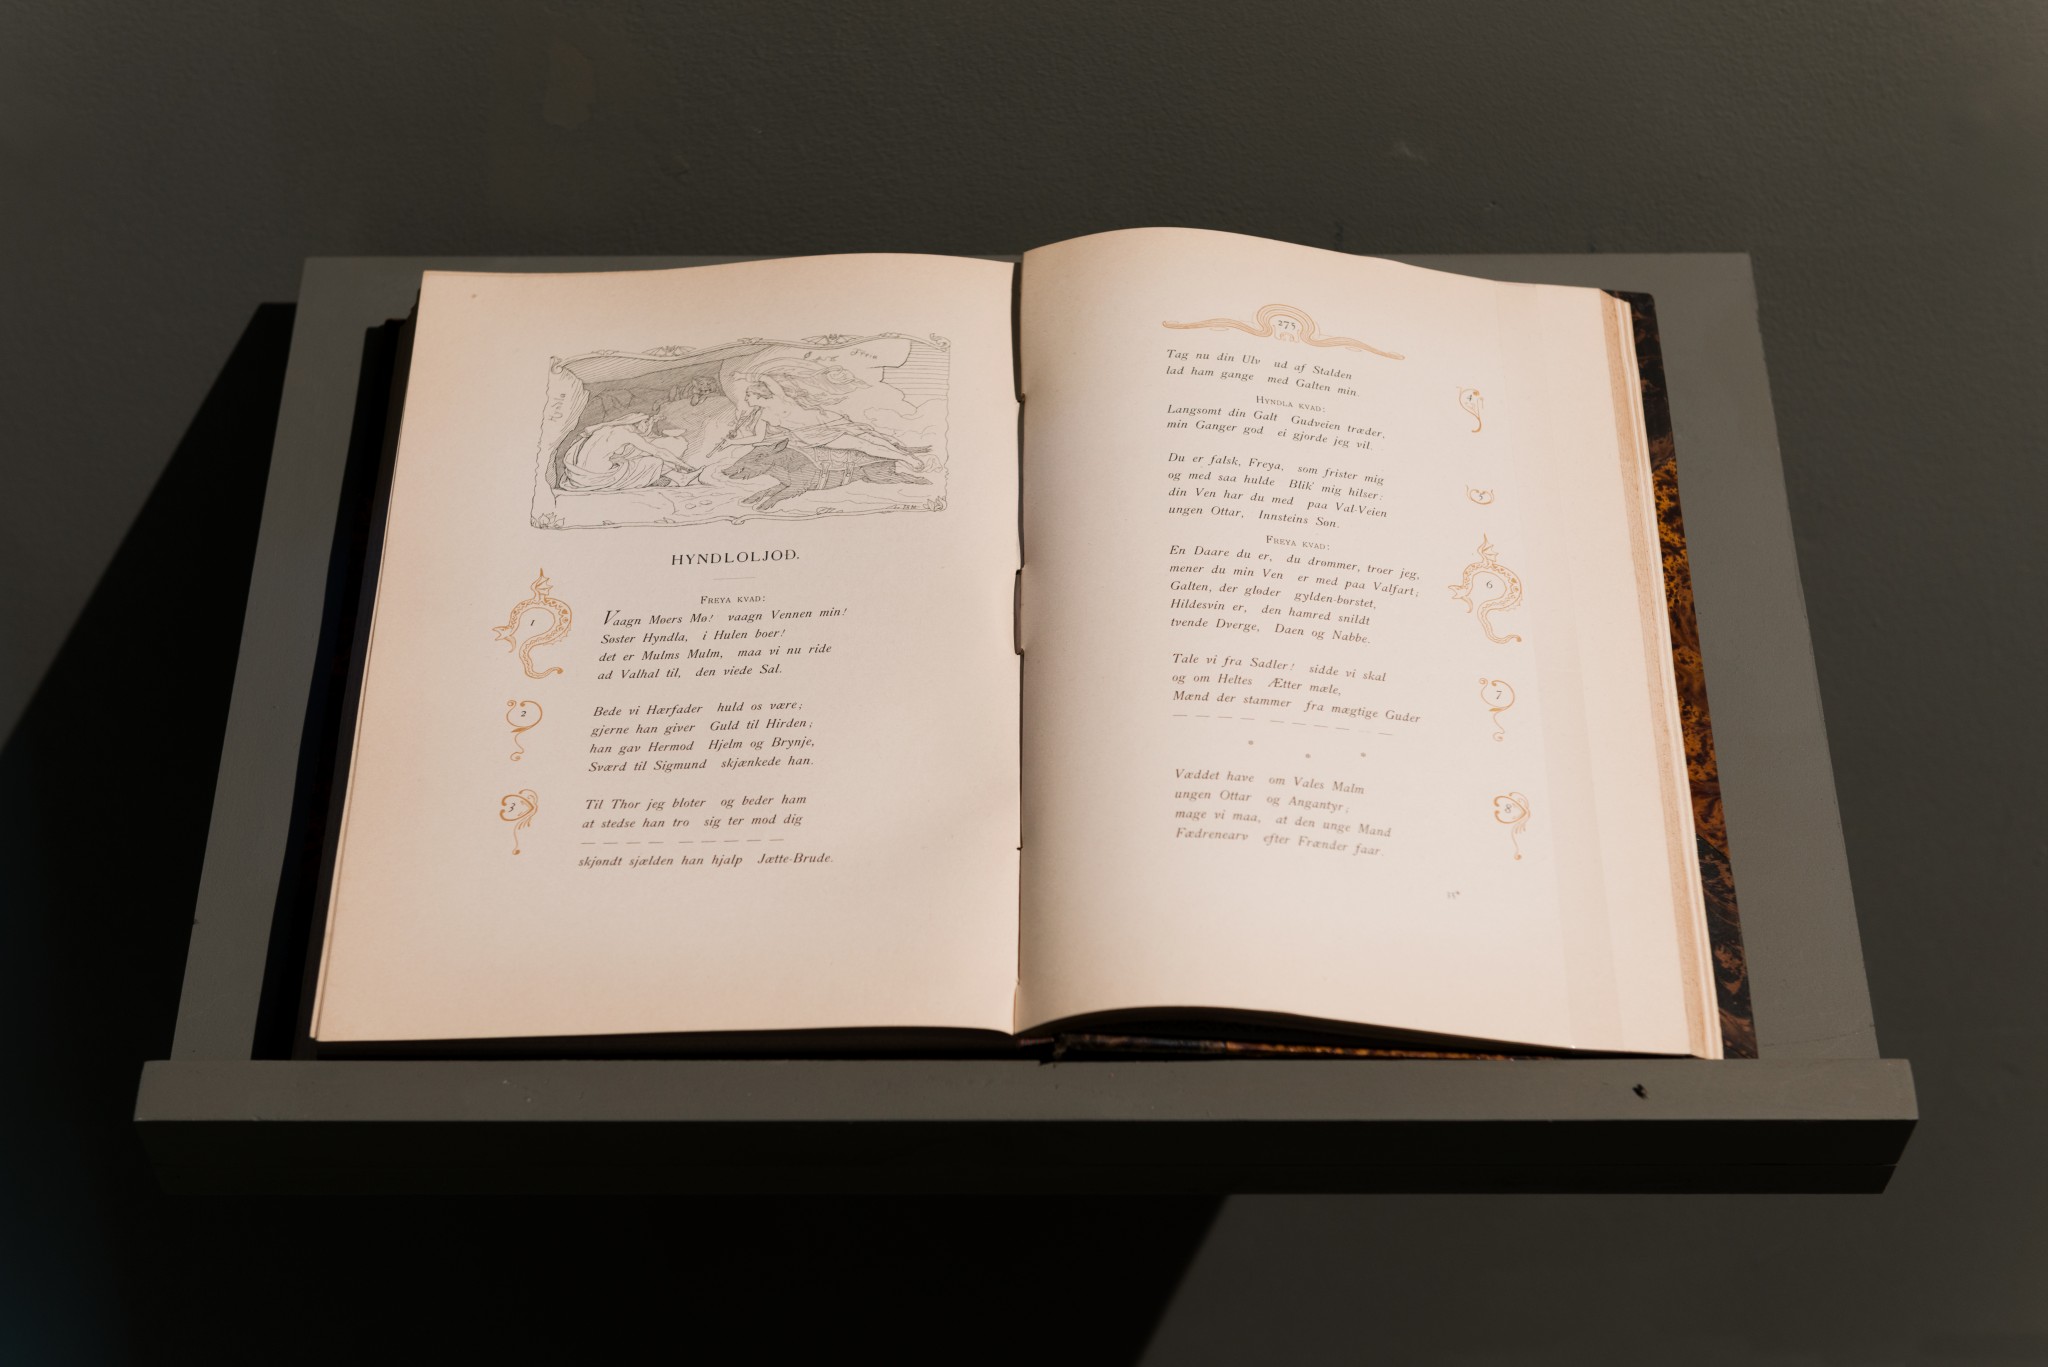 HYNDLOLJOÐ.
FREYA KVAD:
1
Vaagn Møers Mø! vaagn Vennen min!
Søster Hyndla, i Hulen boer!
det er Mulms Mulm, maa vi nu ride
ad Valhal til, den viede Sal.
2
Bede vi Hærfader huld os være;
gjerne han giver Guld til Hirden;
han gav Hermod Hjelm og Brynje,
Sværd til Sigmund skjænkede han.
3
Til Thor jeg bloter og beder ham
at stedse han tro sig ter mod dig
— — — — — — — —
skjøndt sjælden han hjalp Jætte-Brude.
275
4
Tag nu din Ulv ud af Stalden
lad ham gange med Galten min.
HYNDLA KVAD:
Langsomt din Galt Gudveien træder,
min Ganger god ei gjorde jeg vil.
5
Du er falsk, Freya, som frister mig
og med saa hulde Blik mig hilser:
din Ven har du med paa Val-Veien
ungen Ottar, Innsteins Søn.
FREYA KVAD:
6
En Daare du er, du drømmer, troer jeg,
mener du min Ven er med paa Valfart;
Galten, der gløder gylden-børstet,
Hildesvin er, den hamred snildt
tvende Dverge, Daen og Nabbe.
7
Tale vi fra Sadler! sidde vi skal
og om Heltes Ætter mæle,
Mænd der stammer fra mægtige Guder
— — — — — — — —
* * *
8
Væddet have om Vales Malm
ungen Ottar og Angantyr;
mage vi maa, at den unge Mand
Fædrenearv efter Frænder faar.
35*